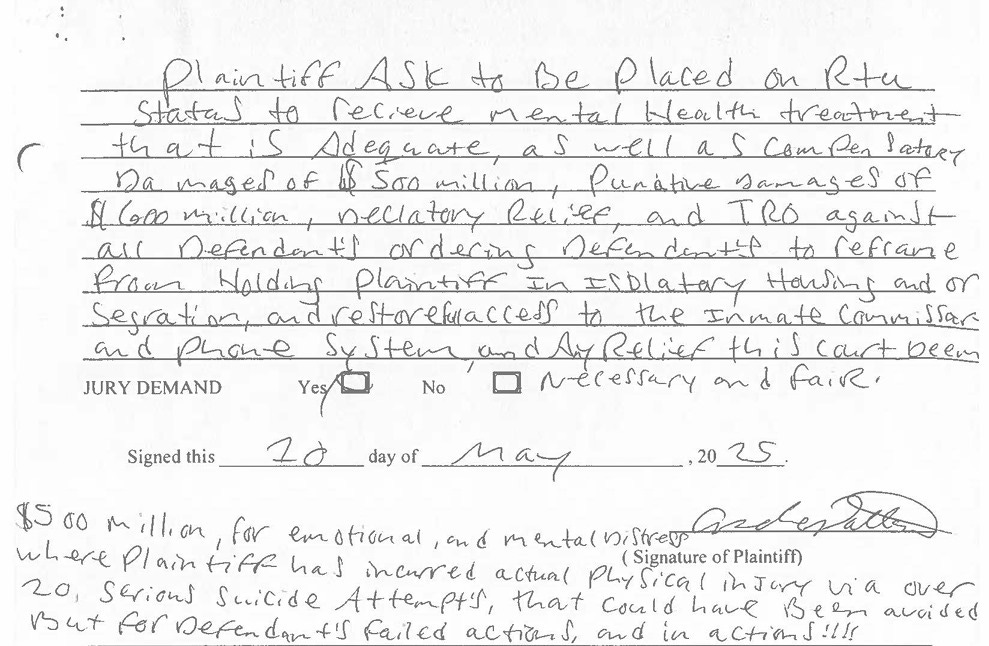 Plaintiff ASK to Be Placed on Rtu
Status to recieve mental Health treatment
that is Adequate, as well as Compensatory
Damages of $ 500 million, Punative Damages of
$ 600 million, Declatory Relief, and TRO against
all Defendant's ordering Defendant's to reframe
from Holding Plaintiff In ISolatory Housing and or
Segration, and restore full access to the Inmate Commissar
and phone System, and Any Relief this court Deem
JURY DEMAND Yes No Necessary and fair.
Signed this 20 day of May , 20 25 .
$500 million, for emotional, and mental Distress
(Signature of Plaintiff)
where Plaintiff has incurred actual Physical injury via over
20, Serious Suicide Attempt's, that could have Been avoided
But for Defendant's failed actions, and in actions!!!!